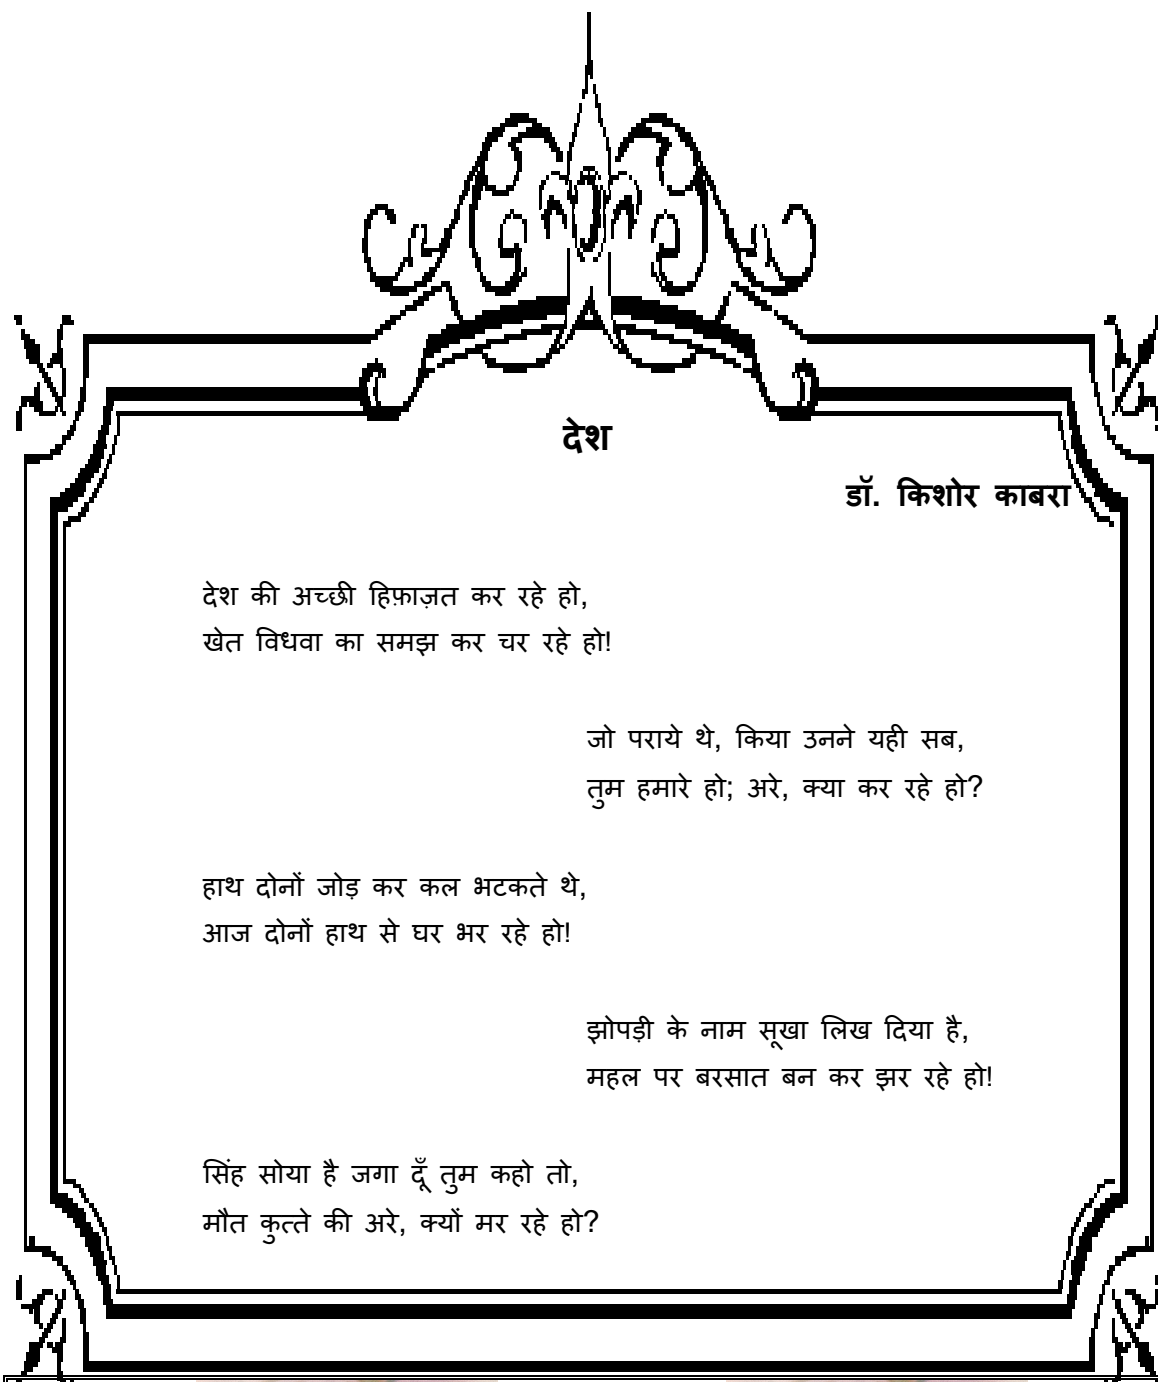 देश
डॉ. किशोर काबरा
देश की अच्छी हिफ़ाज़त कर रहे हो,
खेत विधवा का समझ कर चर रहे हो!
जो पराये थे, किया उनने यही सब,
तुम हमारे हो; अरे, क्या कर रहे हो?
हाथ दोनों जोड़ कर कल भटकते थे,
आज दोनों हाथ से घर भर रहे हो!
झोपड़ी के नाम सूखा लिख दिया है,
महल पर बरसात बन कर झर रहे हो!
सिंह सोया है जगा दूँ तुम कहो तो,
मौत कुत्ते की अरे, क्यों मर रहे हो?